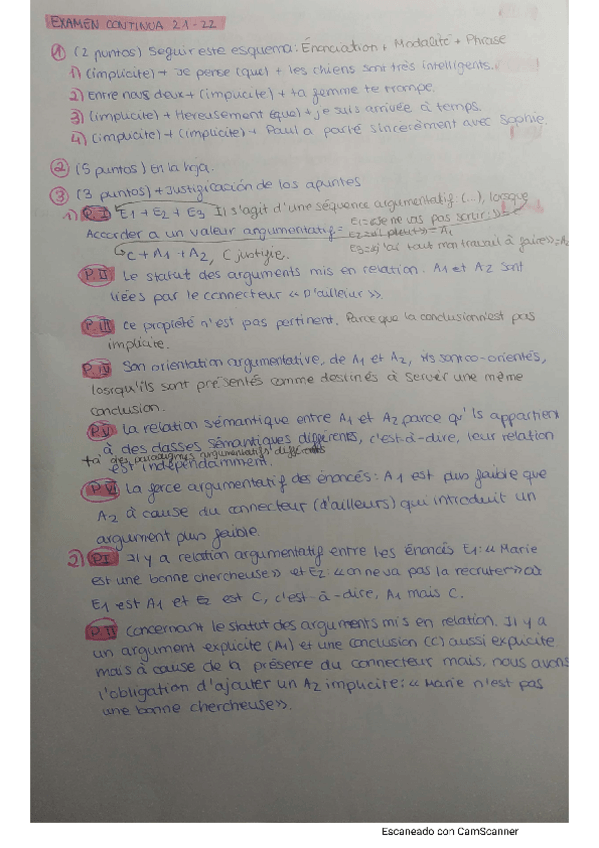 EXAMEN CONTINUA 21-22
① (2 puntos) Seguir este esquema: Énonciation + Modalité + Phrase
1) (implicite) + Je pense (que) + les chiens sont très intelligents.
2) Entre nous deux + (implicite) + ta femme te trompe.
3) (implicite) + Hereusement (que) + je suis arrivée à temps.
4) (implicite) + (implicite) + Paul a parlé sincèrement avec Sophie.
② (5 puntos) En la hoja.
③ (3 puntos) + Justificación de los apuntes
1) P.I E1 + E2 + E3 Il s'agit d'une séquence argumentatif: (...), lorsque
E1= «Je ne vais pas sortir» = C
Accorder a un valeur argumentatif = E2= «il pleut» = A1
E3= «j'ai tout mon travail à faire» = A2
C + A1 + A2, C justifie.
P.II Le statut des arguments mis en relation. A1 et A2 sont
liées par le connecteur «D'ailleur».
P.III Ce propiété n'est pas pertinent. Parce que la conclusion n'est pas
implicite.
P.IV Son orientation argumentative, de A1 et A2, ils son co-orientés,
losrqu'ils sont présentés comme destinés à server une même
conclusion.
P.V La relation sémantique entre A1 et A2 parce qu'ls appartien
à des classes sémantiques différents, c'est-à-dire, leur relation
+ à des paradigmes argumentatifs différents
est indépendamment.
P.VI La force argumentatif des énoncés: A1 est plus faible que
A2 à cause du connecteur (d'ailleurs) qui introduit un
argument plus faible.
2) P.I Il y a relation argumentatif entre les énoncés E1: «Marie
est une bonne chercheuse» et E2: «on ne va pas la recruter» où
E1 est A1 et E2 est C, c'est-à-dire, A1 mais C.
P.II Concernant le statut des arguments mis en relation. Il y a
un argument explicite (A1) et une conclusion (C) aussi explicite
mais à cause de la présence du connecteur mais, nous avons
l'obligation d'ajouter un A2 implicite: «Marie n'est pas
une bonne chercheuse».
Escaneado con CamScanner